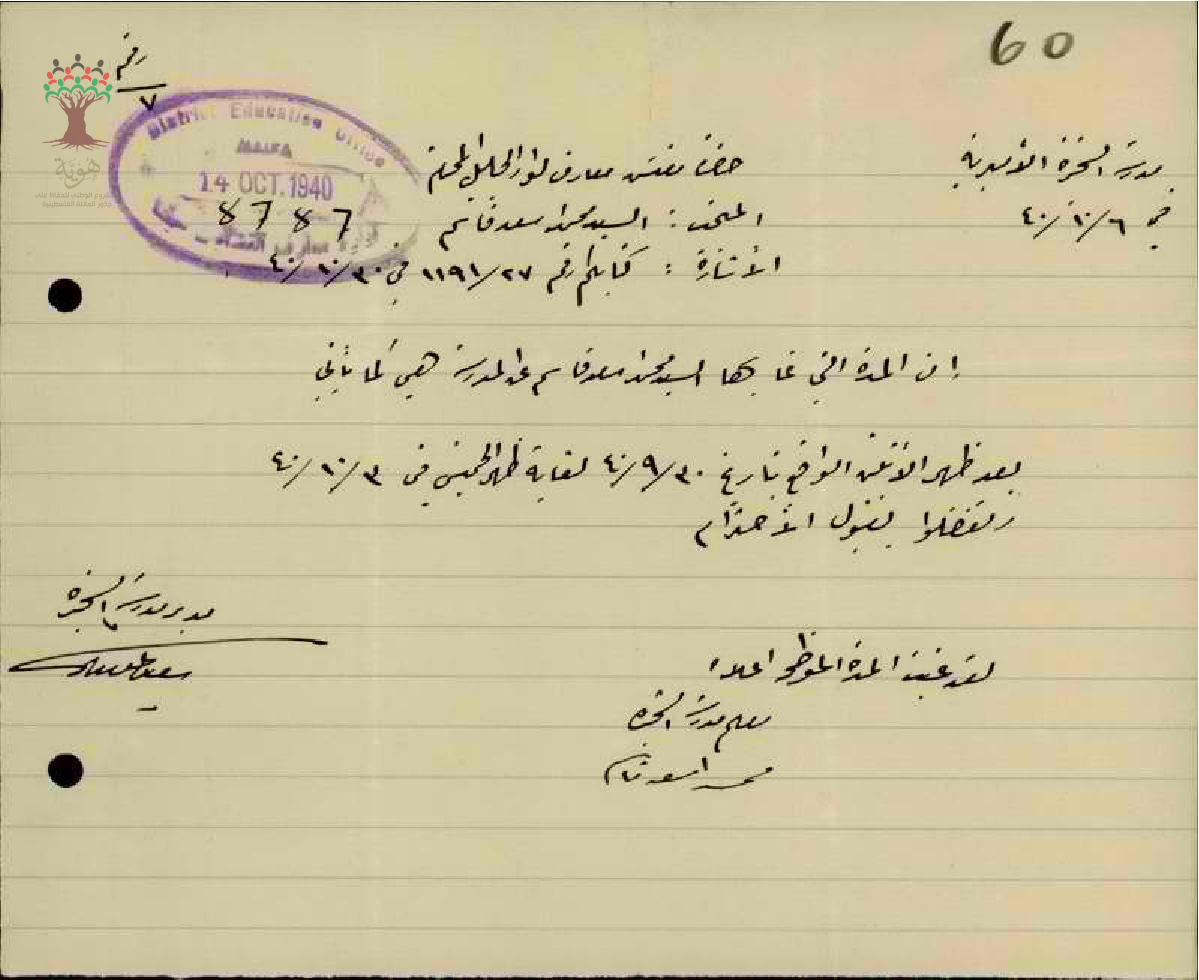 60
رقم
٧
District Education Office
HAIFA
14 OCT. 1940
8787
هوية
مدرسة الشجرة الأميرية
في ٦/١٠/٤٠
حضرة مفتش معارف لواء الجليل المحترم
السيد محمد اسعد قاسم
الأشارة : كتابكم رقم ١١٩١/٢٧ في ٣/١٠/٤٠
ان المدة التي غابها السيد محمد اسعد قاسم عن المدرسة هي كما يأتي
بعد ظهر الأثنين الواقع بتاريخ ٣٠/٩/٤٠ لغاية ظهر الخميس في ٣/١٠/٤٠
وتفضلوا بقبول الأحترام
مدير مدرسة الشجرة
لقد غبت المدة الموضحة اعلاه
معلم مدرسة الشجرة
محمد اسعد قاسم